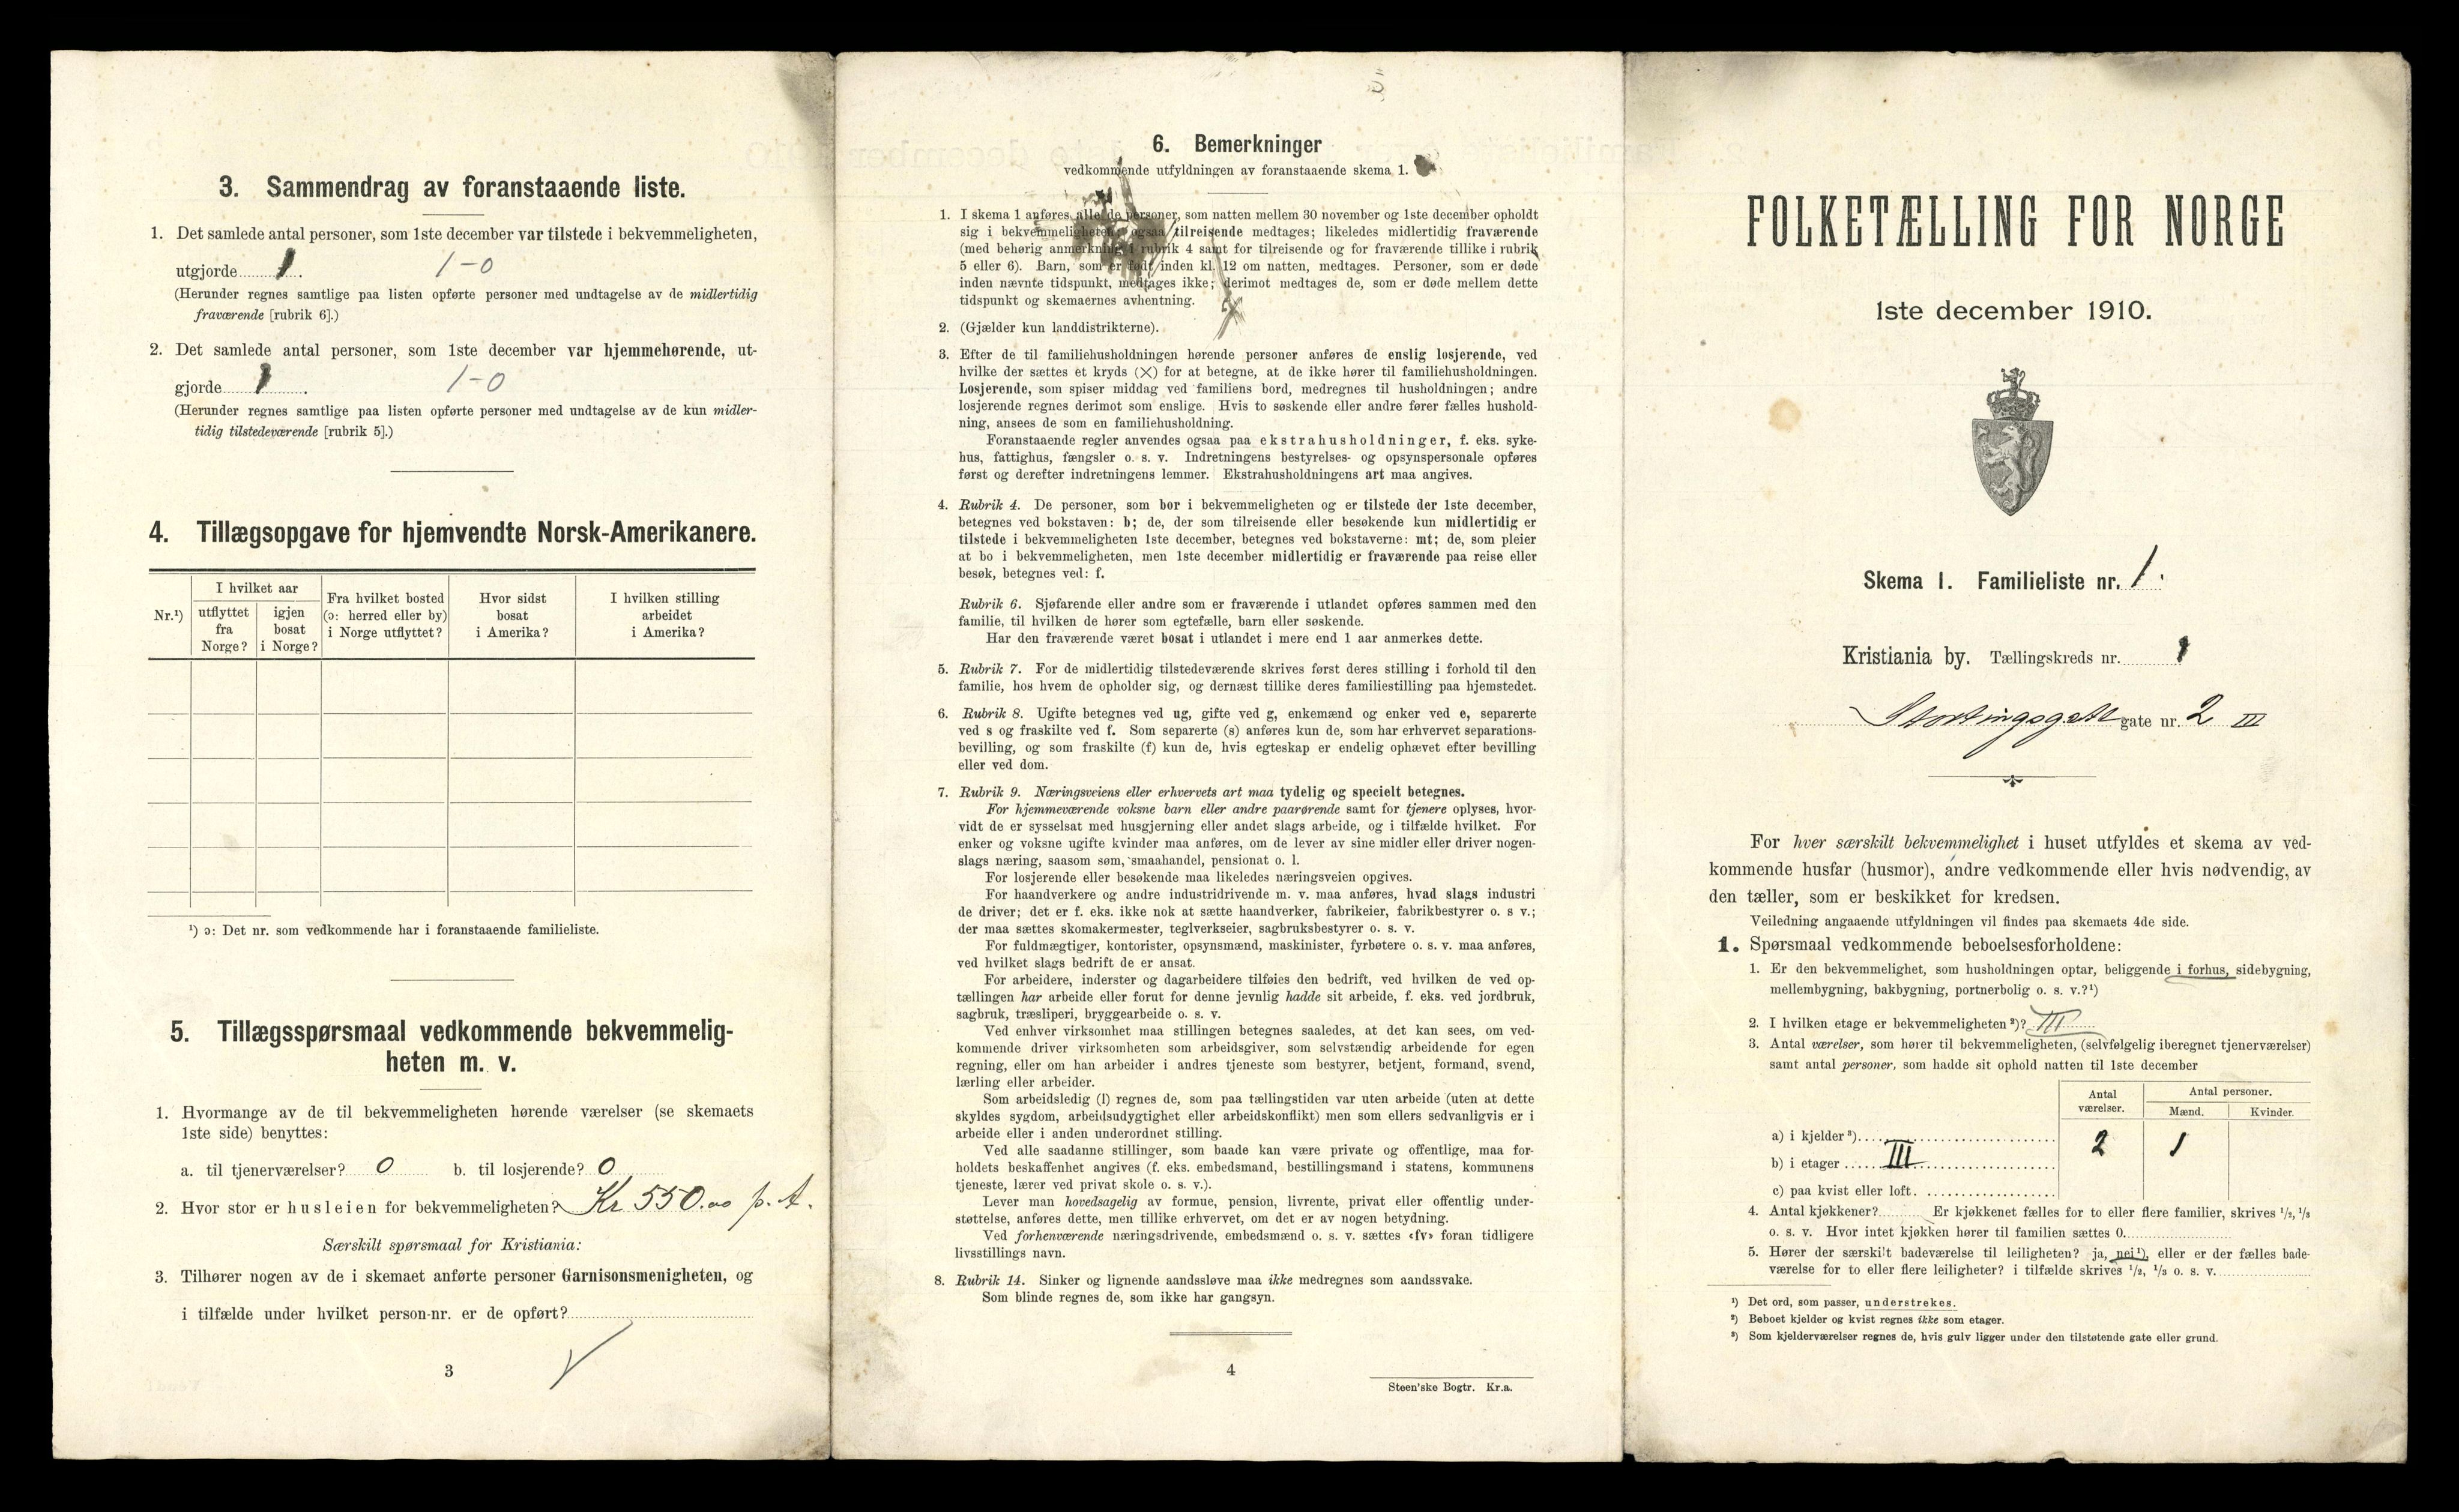 3. Sammendrag av foranstaaende liste.
1. Det samlede antal personer, som 1ste december var tilstede i bekvemmeligheten,
utgjorde 1. 1-0
(Herunder regnes samtlige paa listen opførte personer med undtagelse av de midlertidig
fraværende [rubrik 6].)
2. Det samlede antal personer, som 1ste december var hjemmehørende, ut-
gjorde 1. 1-0
(Herunder regnes samtlige paa listen opførte personer med undtagelse av de kun midler-
tidig tilstedeværende [rubrik 5].)
4. Tillægsopgave for hjemvendte Norsk-Amerikanere.
Nr.¹)
I hvilket aar
utflyttet fra Norge?
igjen bosat i Norge?
Fra hvilket bosted (ɔ: herred eller by) i Norge utflyttet?
Hvor sidst bosat i Amerika?
I hvilken stilling arbeidet i Amerika?
¹) ɔ: Det nr. som vedkommende har i foranstaaende familieliste.
5. Tillægsspørsmaal vedkommende bekvemmelig-
heten m. v.
1. Hvormange av de til bekvemmeligheten hørende værelser (se skemaets
1ste side) benyttes:
a. til tjenerværelser? 0 b. til losjerende? 0
2. Hvor stor er husleien for bekvemmeligheten? Kr 550.00 p. A.
Særskilt spørsmaal for Kristiania:
3. Tilhører nogen av de i skemaet anførte personer Garnisonsmenigheten, og
i tilfælde under hvilket person-nr. er de opført?
3
6. Bemerkninger
vedkommende utfyldningen av foranstaaende skema 1.
1. I skema 1 anføres alle de personer, som natten mellem 30 november og 1ste december opholdt
sig i bekvemmeligheten; ogsaa tilreisende medtages; likeledes midlertidig fraværende
(med behørig anmerkning i rubrik 4 samt for tilreisende og for fraværende tillike i rubrik
5 eller 6). Barn, som er født inden kl. 12 om natten, medtages. Personer, som er døde
inden nævnte tidspunkt, medtages ikke; derimot medtages de, som er døde mellem dette
tidspunkt og skemaernes avhentning.
2. (Gjælder kun landdistrikterne).
3. Efter de til familiehusholdningen hørende personer anføres de enslig losjerende, ved
hvilke der sættes et kryds (×) for at betegne, at de ikke hører til familiehusholdningen.
Losjerende, som spiser middag ved familiens bord, medregnes til husholdningen; andre
losjerende regnes derimot som enslige. Hvis to søskende eller andre fører fælles hushold-
ning, ansees de som en familiehusholdning.
Foranstaaende regler anvendes ogsaa paa ekstrahusholdninger, f. eks. syke-
hus, fattighus, fængsler o. s. v. Indretningens bestyrelses- og opsynspersonale opføres
først og derefter indretningens lemmer. Ekstrahusholdningens art maa angives.
4. Rubrik 4. De personer, som bor i bekvemmeligheten og er tilstede der 1ste december,
betegnes ved bokstaven: b; de, der som tilreisende eller besøkende kun midlertidig er
tilstede i bekvemmeligheten 1ste december, betegnes ved bokstaverne: mt; de, som pleier
at bo i bekvemmeligheten, men 1ste december midlertidig er fraværende paa reise eller
besøk, betegnes ved: f.
Rubrik 6. Sjøfarende eller andre som er fraværende i utlandet opføres sammen med den
familie, til hvilken de hører som egtefælle, barn eller søskende.
Har den fraværende været bosat i utlandet i mere end 1 aar anmerkes dette.
5. Rubrik 7. For de midlertidig tilstedeværende skrives først deres stilling i forhold til den
familie, hos hvem de opholder sig, og dernæst tillike deres familiestilling paa hjemstedet.
6. Rubrik 8. Ugifte betegnes ved ug, gifte ved g, enkemænd og enker ved e, separerte
ved s og fraskilte ved f. Som separerte (s) anføres kun de, som har erhvervet separations-
bevilling, og som fraskilte (f) kun de, hvis egteskap er endelig ophævet efter bevilling
eller ved dom.
7. Rubrik 9. Næringsveiens eller erhvervets art maa tydelig og specielt betegnes.
For hjemmeværende voksne barn eller andre paarørende samt for tjenere oplyses, hvor-
vidt de er sysselsat med husgjerning eller andet slags arbeide, og i tilfælde hvilket. For
enker og voksne ugifte kvinder maa anføres, om de lever av sine midler eller driver nogen-
slags næring, saasom søm, smaahandel, pensionat o. l.
For losjerende eller besøkende maa likeledes næringsveien opgives.
For haandverkere og andre industridrivende m. v. maa anføres, hvad slags industri
de driver; det er f. eks. ikke nok at sætte haandverker, fabrikeier, fabrikbestyrer o. s v.;
der maa sættes skomakermester, teglverkseier, sagbruksbestyrer o. s. v.
For fuldmægtiger, kontorister, opsynsmænd, maskinister, fyrbøtere o. s. v. maa anføres,
ved hvilket slags bedrift de er ansat.
For arbeidere, inderster og dagarbeidere tilføies den bedrift, ved hvilken de ved op-
tællingen har arbeide eller forut for denne jevnlig hadde sit arbeide, f. eks. ved jordbruk,
sagbruk, træsliperi, bryggearbeide o. s. v.
Ved enhver virksomhet maa stillingen betegnes saaledes, at det kan sees, om ved-
kommende driver virksomheten som arbeidsgiver, som selvstændig arbeidende for egen
regning, eller om han arbeider i andres tjeneste som bestyrer, betjent, formand, svend,
lærling eller arbeider.
Som arbeidsledig (l) regnes de, som paa tællingstiden var uten arbeide (uten at dette
skyldes sygdom, arbeidsudygtighet eller arbeidskonflikt) men som ellers sedvanligvis er i
arbeide eller i anden underordnet stilling.
Ved alle saadanne stillinger, som baade kan være private og offentlige, maa for-
holdets beskaffenhet angives (f. eks. embedsmand, bestillingsmand i statens, kommunens
tjeneste, lærer ved privat skole o. s. v.).
Lever man hovedsagelig av formue, pension, livrente, privat eller offentlig under-
støttelse, anføres dette, men tillike erhvervet, om det er av nogen betydning.
Ved forhenværende næringsdrivende, embedsmænd o. s. v. sættes «fv» foran tidligere
livsstillings navn.
8. Rubrik 14. Sinker og lignende aandssløve maa ikke medregnes som aandssvake.
Som blinde regnes de, som ikke har gangsyn.
4
Steen'ske Bogtr. Kr.a.
FOLKETÆLLING FOR NORGE
1ste december 1910.
Skema 1. Familieliste nr. 1.
Kristiania by. Tællingskreds nr. 1
Stortingsgate gate nr. 2 III
For hver særskilt bekvemmelighet i huset utfyldes et skema av ved-
kommende husfar (husmor), andre vedkommende eller hvis nødvendig, av
den tæller, som er beskikket for kredsen.
Veiledning angaaende utfyldningen vil findes paa skemaets 4de side.
1. Spørsmaal vedkommende beboelsesforholdene:
1. Er den bekvemmelighet, som husholdningen optar, beliggende i forhus, sidebygning,
mellembygning, bakbygning, portnerbolig o. s. v.?¹)
2. I hvilken etage er bekvemmeligheten²)? III
3. Antal værelser, som hører til bekvemmeligheten, (selvfølgelig iberegnet tjenerværelser)
samt antal personer, som hadde sit ophold natten til 1ste december
Antal værelser.
Antal personer.
Mænd. Kvinder.
a) i kjelder³)
b) i etager III 2 1
c) paa kvist eller loft.
4. Antal kjøkkener? Er kjøkkenet fælles for to eller flere familier, skrives ¹/₂, ¹/₃
o. s. v. Hvor intet kjøkken hører til familien sættes 0.
5. Hører der særskilt badeværelse til leiligheten? ja, nei¹), eller er der fælles bade-
værelse for to eller flere leiligheter? i tilfælde skrives ¹/₂, ¹/₃ o. s. v.
¹) Det ord, som passer, understrekes.
²) Beboet kjelder og kvist regnes ikke som etager.
³) Som kjelderværelser regnes de, hvis gulv ligger under den tilstøtende gate eller grund.